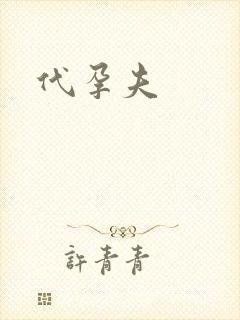 代孕夫
許青青